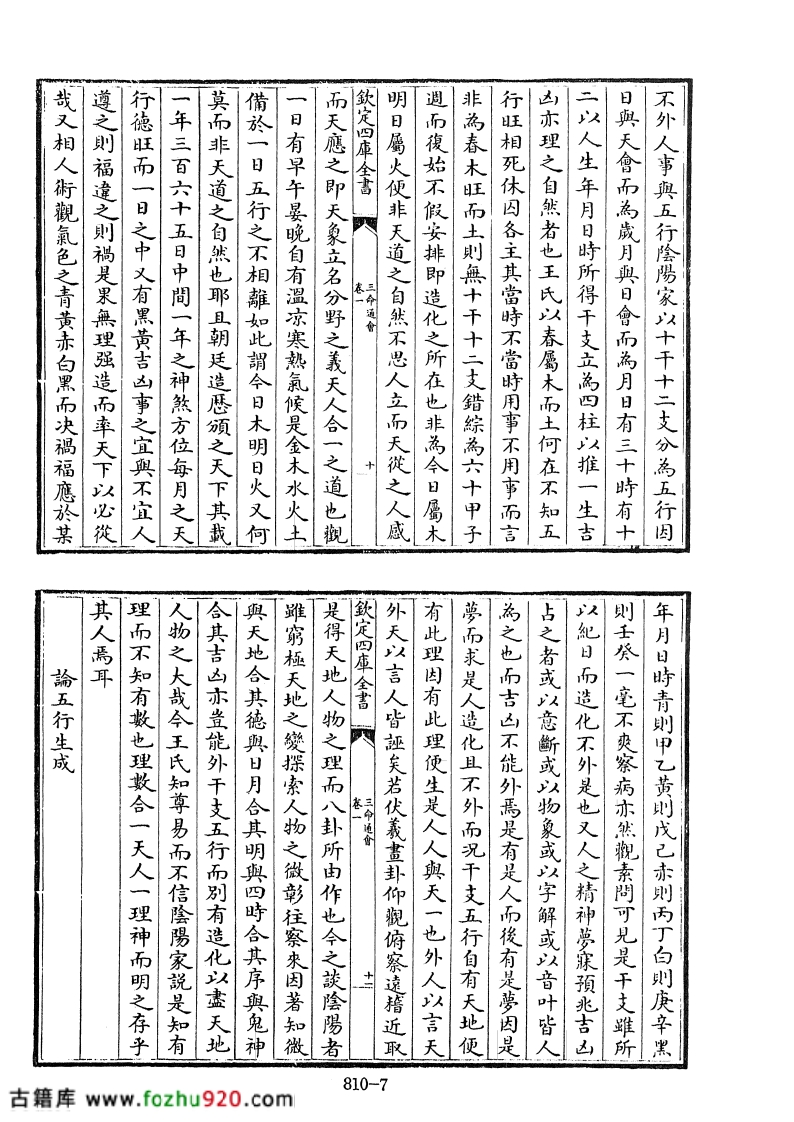 不外人事與五行陰陽家以十干十二支分為五行因
日與天會而為歲月與日會而為月日有三十時有十
二以人生年月日時所得干支立為四柱以推一生吉
凶亦理之自然者也王氏以春屬木而土何在不知五
行旺相死休囚各主其當時不當時用事不用事而言
非為春木旺而土則無十干十二支錯綜為六十甲子
週而復始不假安排即造化之所在也非為今日屬木
明日屬火便非天道之自然不思人立而天從之人感
欽定四庫全書
三命通會
卷一
十
而天應之即天象立名分野之義天人合一之道也觀
一日有早午晏晚自有溫凉寒熱氣候是金木水火土
備於一日五行之不相離如此謂今日木明日火又何
莫而非天道之自然也耶且朝廷造歷頒之天下其載
一年三百六十五日中間一年之神煞方位每月之天
行德旺而一日之中又有黑黃吉凶事之宜與不宜人
遵之則福違之則禍是果無理强造而率天下以必從
哉又相人術觀氣色之青黃赤白黑而决禍福應於某
年月日時青則甲乙黃則戊己赤則丙丁白則庚辛黑
則壬癸一毫不爽察病亦然觀素問可見是干支雖所
以紀日而造化不外是也又人之精神夢寐預兆吉凶
占之者或以意斷或以物象或以字解或以音叶皆人
為之也而吉凶不能外焉是有是人而後有是夢因是
夢而求是人造化且不外而況干支五行自有天地便
有此理因有此理便生是人人與天一也外人以言天
外天以言人皆誣矣若伏羲畫卦仰觀俯察遠稽近取
欽定四庫全書
三命通會
卷一
十二
是得天地人物之理而八卦所由作也今之談陰陽者
雖窮極天地之變探索人物之微彰往察來因著知微
與天地合其德與日月合其明與四時合其序與鬼神
合其吉凶亦豈能外干支五行而別有造化以盡天地
人物之大哉今王氏知尊易而不信陰陽家説是知有
理而不知有數也理數合一天人一理神而明之存乎
其人焉耳
論五行生成
810-7
古籍库 www.fozhu920.com